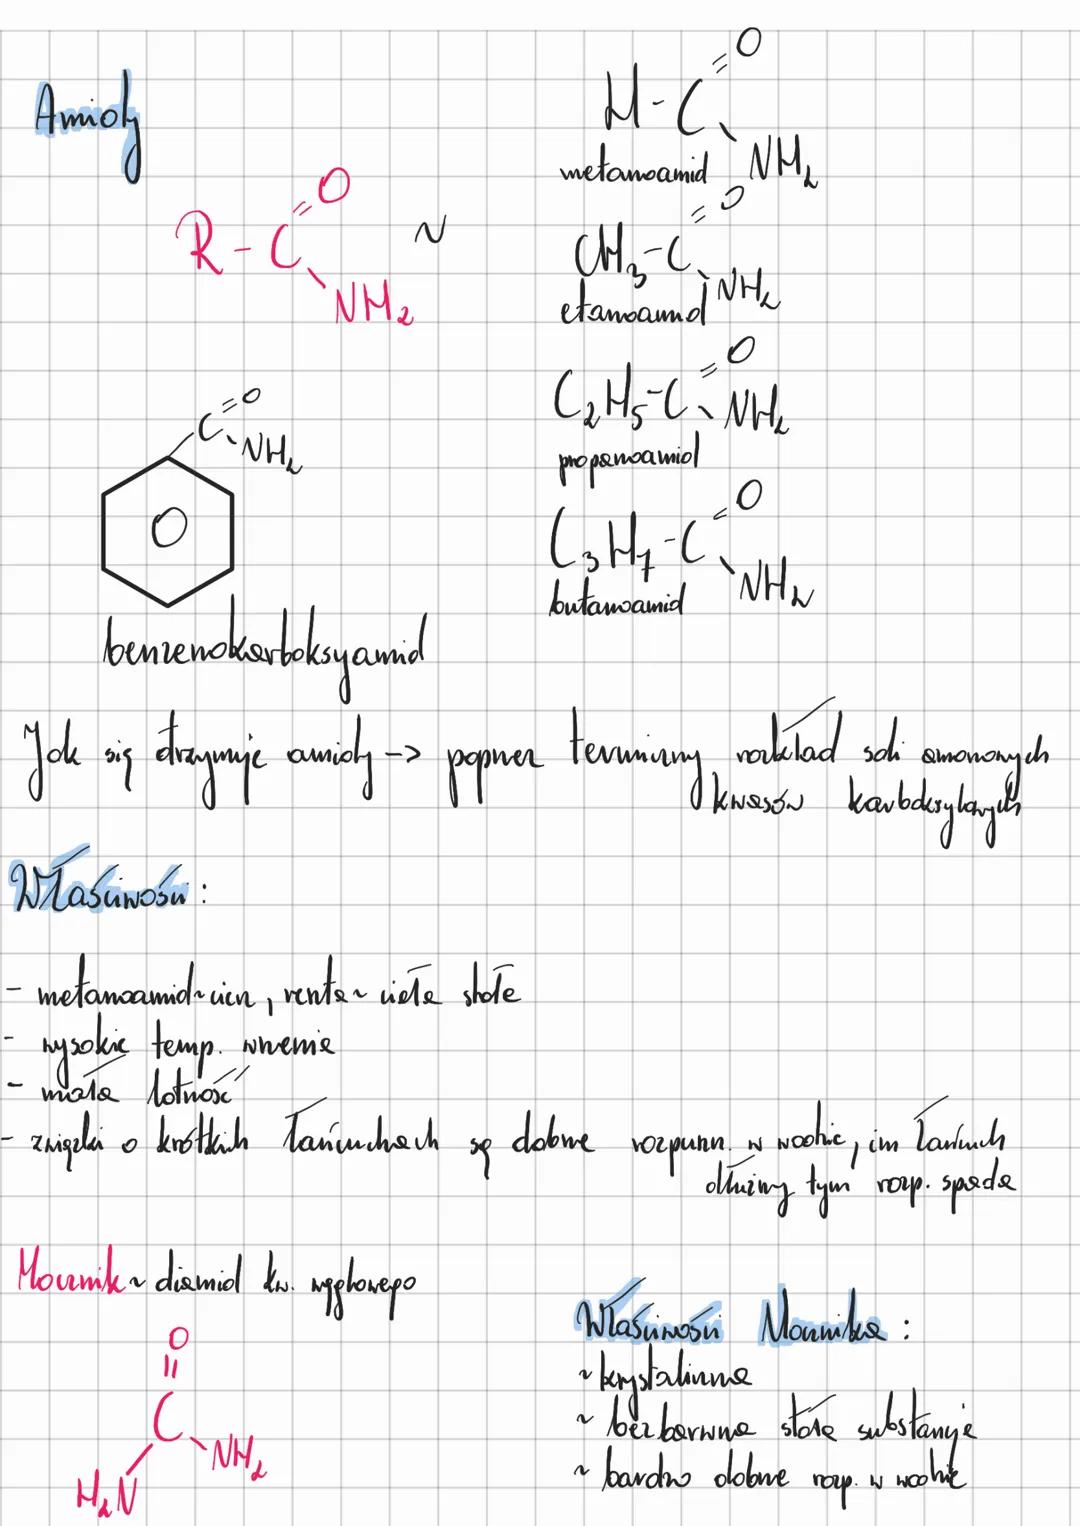 Amidy
R-C=O
NH2
~
H-C=O
NH2
metanoamid
CH3-C=O
NH2
etanoamid
C2H5-C=O
NH2
propanoamid
C3H7-C=O
NH2
butanoamid
C=O
NH2
benzenokarboksyamid
Jak się otrzymuje amidy -> poprzez termiczny rozkład soli amonowych
kwasów karboksylowych
Właściwości:
- metanoamid~ciecz, reszta~ciała stałe
- wysokie temp. wrzenia
- mała lotność
- związki o krótkich łańcuchach są dobrze rozpuszcz. w wodzie, im łańcuch
dłuższy tym rozp. spada
Mocznik ~ diamid kw. węglowego
O
C
H2N NH2
Właściwości Mocznika:
~ krystaliczna
~ bezbarwna stała substancja
~ bardzo dobrze rozp. w wodzie